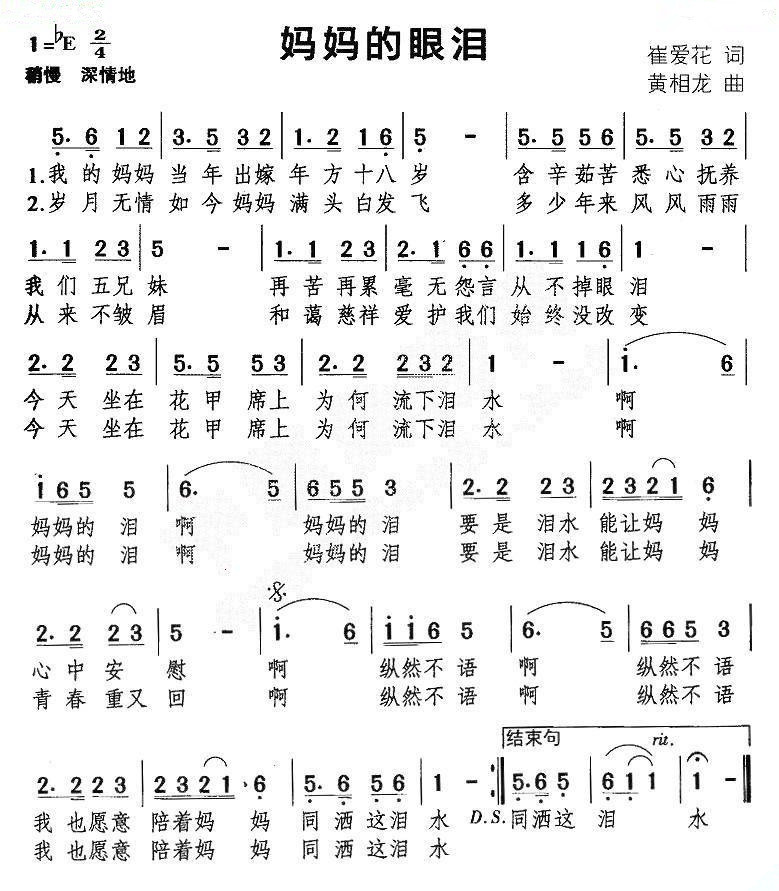 妈妈的眼泪
1=♭E 2/4
稍慢 深情地
崔爱花 词
黄相龙 曲
5. 6 1 2 | 3. 5 3 2 | 1. 2 1 6 | 5 - | 5. 5 5 6 | 5. 5 3 2 |
1.我的妈妈 当年出嫁 年方十八 岁 含辛茹苦 悉心抚养
2.岁月无情 如今妈妈 满头白发 飞 多少年来 风风雨雨
1. 1 2 3 | 5 - | 1. 1 2 3 | 2. 1 6 6 | 1. 1 1 6 | 1 - |
我们五兄 妹 再苦再累 毫无怨言 从不掉眼 泪
从来不皱 眉 和蔼慈祥 爱护我们 始终没改 变
2. 2 2 3 | 5. 5 5 3 | 2. 2 2 3 2 | 1 - | i. 6 |
今天坐在 花甲席上 为何流下泪 水 啊
今天坐在 花甲席上 为何流下泪 水 啊
i 6 5 5 5 | 6. 5 | 6 6 5 5 3 | 2. 2 2 3 | 2 3 2 1 6 |
妈妈的泪 啊 妈妈的泪 要是泪水 能让妈妈
妈妈的泪 啊 妈妈的泪 要是泪水 能让妈妈
2. 2 2 3 | 5 - | i. 6 | i i 6 5 | 6. 5 | 6 6 5 3 |
心中安 慰 啊 纵然不语 啊 纵然不语
青春重又 回 啊 纵然不语 啊 纵然不语
结束句 rit.
2. 2 2 3 | 2 3 2 1 6 | 5. 6 5 6 | 1 - :| 5. 6 5 | 6 1 1 | 1 - |
我也愿意 陪着妈妈 同洒这泪 水 D.S.同洒这 泪 水
我也愿意 陪着妈妈 同洒这泪 水